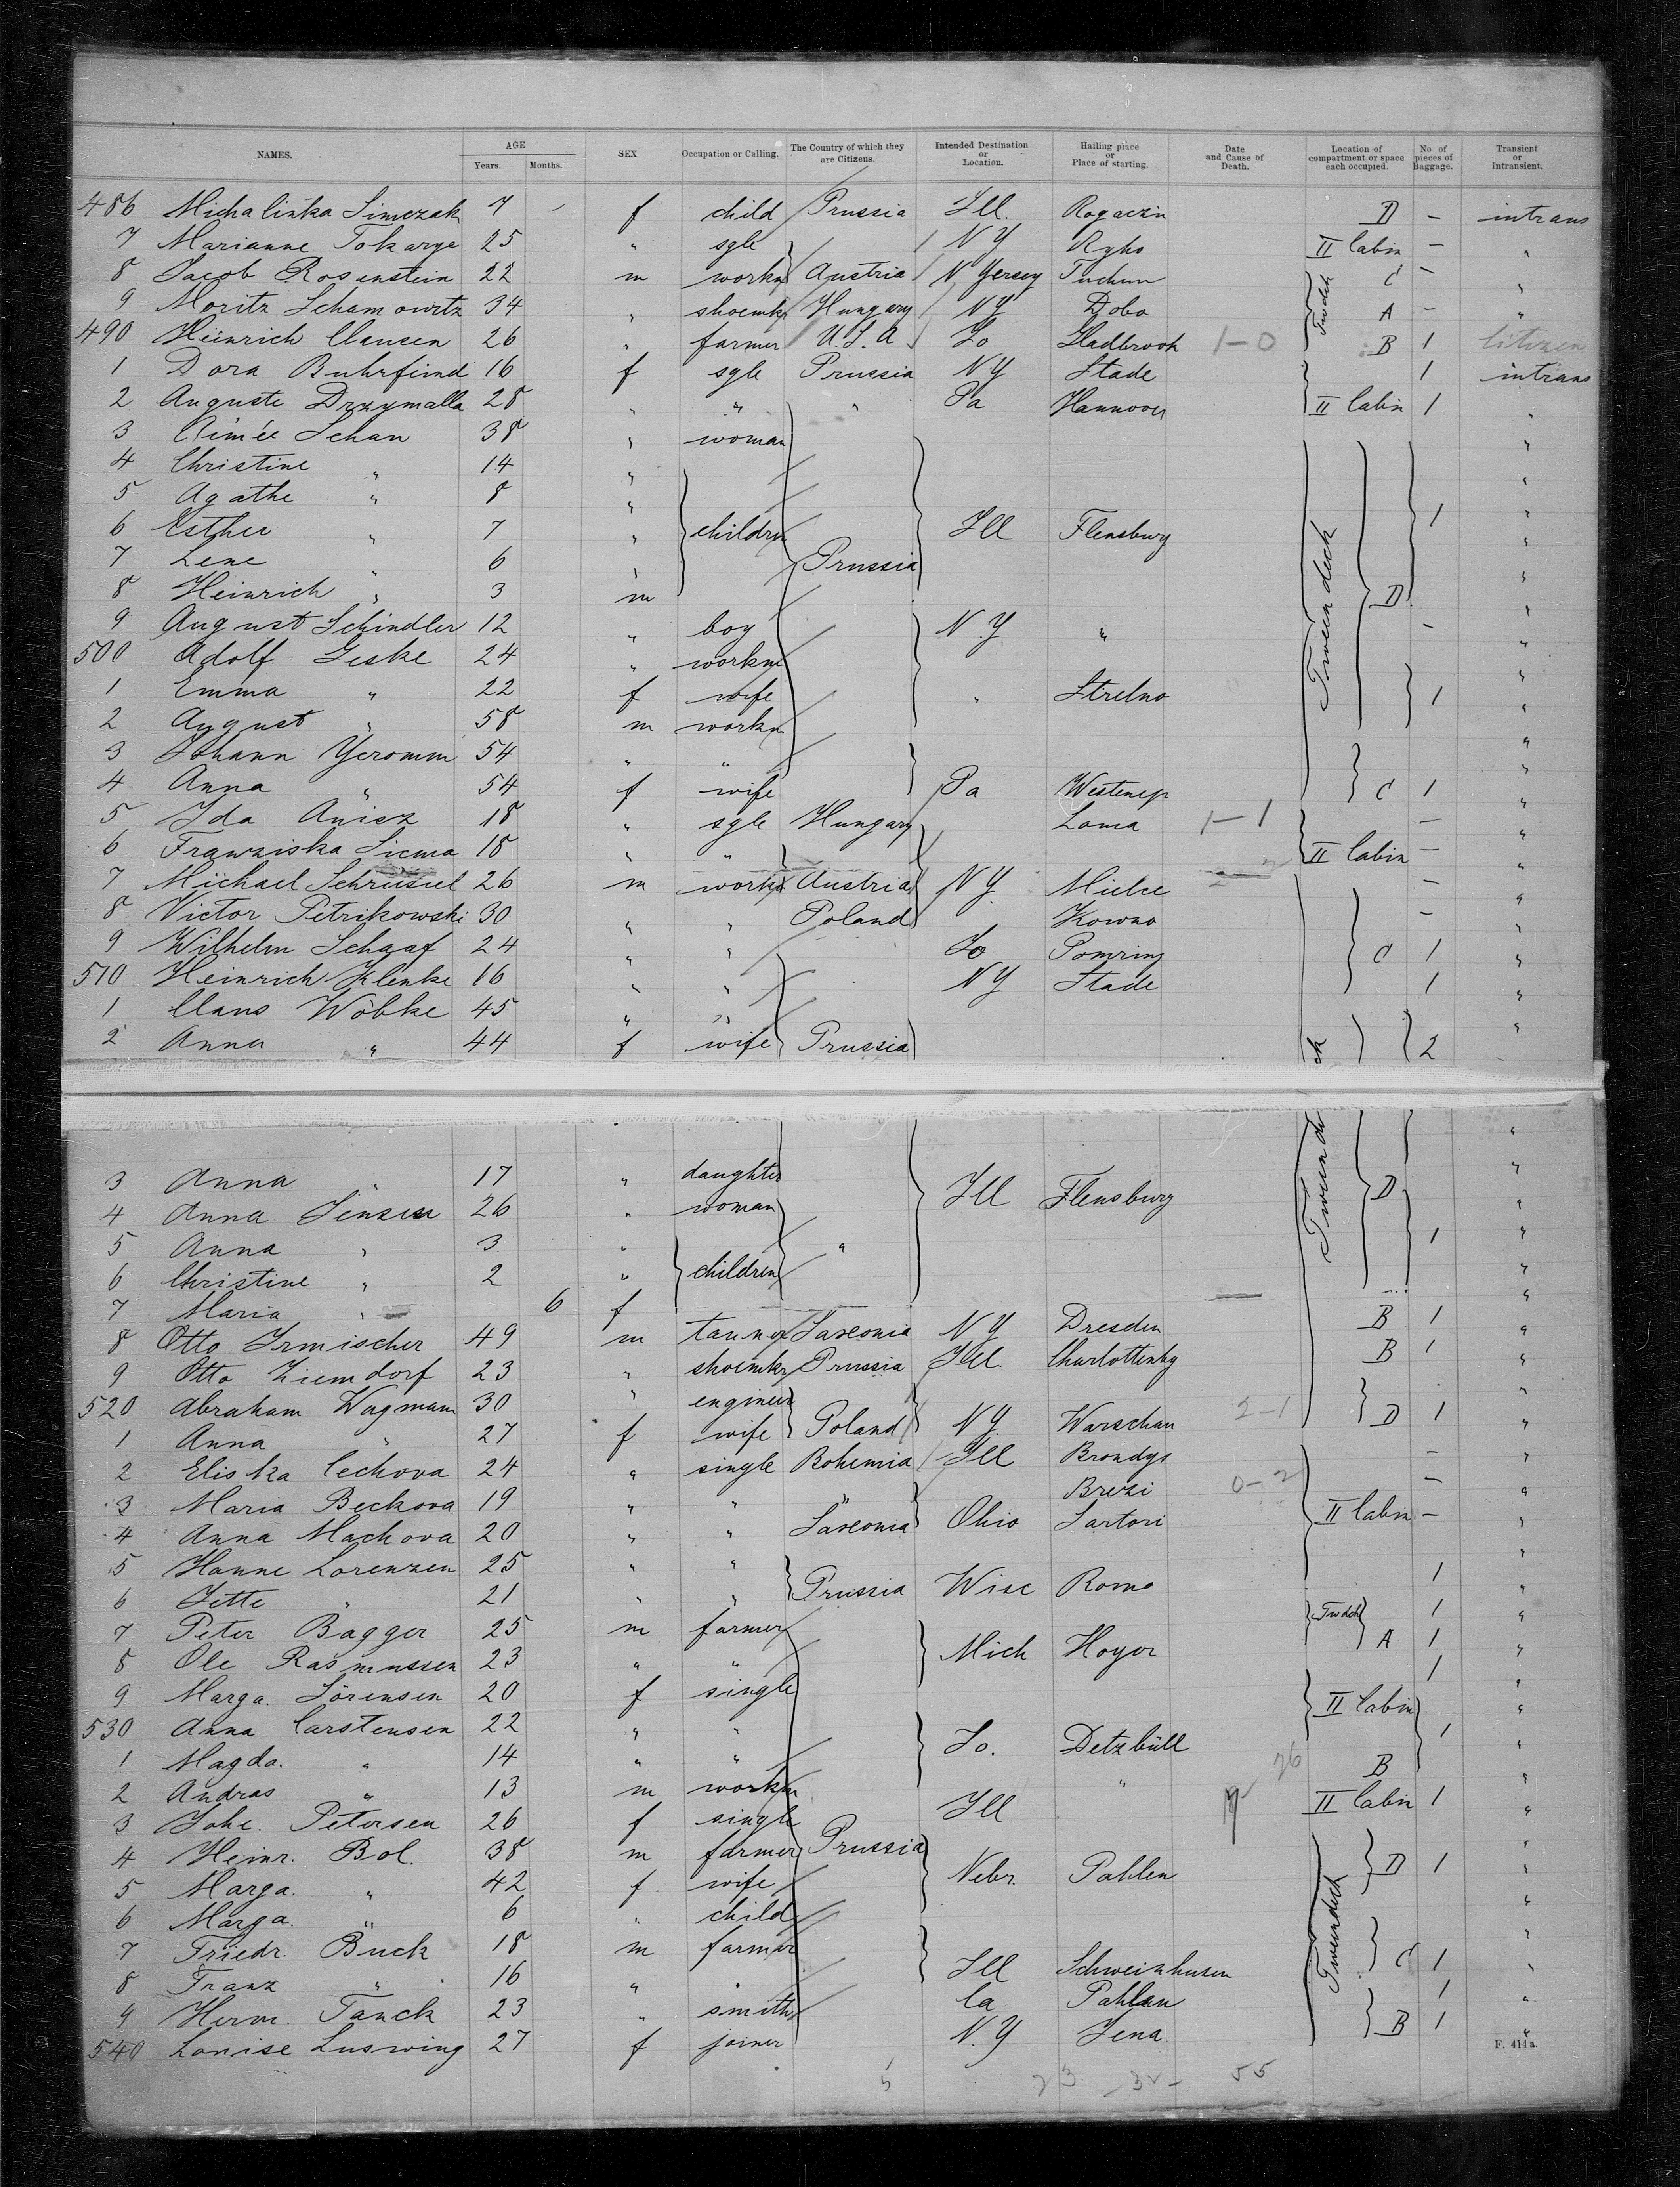 NAMES. AGE SEX Occupation or Calling. The Country of which they are Citizens. Intended Destination or Location. Hailing place or Place of starting. Date and Cause of Death. Location of compartment or space each occupied. No of pieces of Baggage. Transient or Intransient.
Years. Months.
486 Michalinka Simczak 7 - f child Prussia Ill. Rogaczin D - intrans
7 Marianne Tokarye 25 " sgle N Y Ryko II Cabin - "
8 Jacob Rosenstein 22 m workm Austria N Yersey Tuchum C - "
9 Moritz Schamowitz 34 " shoemkr Hungary NY Dobo Twdck A - "
490 Heinrich Clausen 26 " farmer U.S.A Io Hadbrook 1-0 B 1 Citizen
1 Dora Buhrfeind 16 f sgle Prussia NY Stade 1 intrans
2 Auguste Drzymalla 28 " " " Pa Hannover II Cabin 1 "
3 Aimée Schan 38 " woman "
4 Christine " 14 " "
5 Agathe " 8 " 1 "
6 Esther " 7 " children Ill Flensburg "
7 Lene " 6 " Prussia "
8 Heinrich " 3 m Tweendeck D "
9 August Schindler 12 " boy N.Y " - "
500 Adolf Geske 24 " workm "
1 Emma " 22 f wife " Strelno 1 "
2 August " 58 m workm "
3 Johann Yeromm 54 " " "
4 Anna " 54 f wife Pa Westenep C 1 "
5 Ida Anisz 18 " sgle Hungary Loma 1-1 - "
6 Franziska Siema 18 " " II Cabin - "
7 Michael Schrusiel 26 m workm Austria NY. Mielce - "
8 Victor Petrikowski 30 " " Poland Kowno - "
9 Wilhelm Schaaf 24 " " Io Pomring C 1 "
510 Heinrich Klenke 16 " " NY Stade 1 "
1 Claus Wöbke 45 " " "
2 Anna " 44 f wife Prussia ck 2
3 Anna " 17 " daughter Ill Flensburg D "
4 Anna Jensen 26 " woman "
5 Anna " 3 " " Tweende 1 "
6 Christine " 2 " children "
7 Maria " 6 f "
8 Otto Irmischer 49 m tanner Saxonia NY Dresden B 1 "
9 Otto Ziemdorf 23 " shoemkr Prussia Ill. Charlottenbg B 1 "
520 Abraham Wagmann 30 " engineer "
1 Anna " 27 f wife Poland NY. Warschau 2-1 D 1 "
2 Eliska Cechova 24 " single Bohemia Ill Brondys - "
3 Maria Beckova 19 " " " Brezi 0-2 - "
4 Anna Machova 20 " " Saxonia Ohio Sartori II Cabin - "
5 Hanne Lorenzen 25 " " 1 "
6 Jette " 21 " " Prussia Wisc Romo "
7 Peter Bagger 25 m farmer Twdck 1 "
8 Ole Rasmussen 23 " " Mich Hoyer A 1 "
9 Marga. Sörensen 20 f single 1 "
530 Anna Carstensen 22 " " II Cabin "
1 Magda. " 14 " " Io. Detzbüll 1 "
2 Andras " 13 m workm " 26 B "
3 Johe. Petersen 26 f single Ill II Cabin 1 "
4 Heinr. Bol. 38 m farmer Prussia D 1 "
5 Marga. " 42 f. wife Nebr. Pahlen "
6 Marga. " 6 " child "
7 Friedr. Buck 18 m farmer Tweendeck C 1 "
8 Franz " 16 " " Ill Schweinhusen 1 "
9 Herm. Tanck 23 " smith Ca Pahlen "
540 Louise Luswing 27 f joiner N.Y Jena B 1 "
F. 411a.
5 23 -32- 55